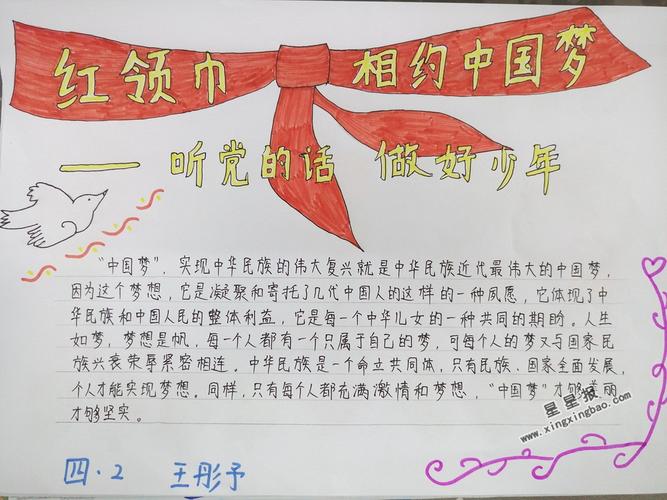 红领巾 相约中国梦
——听党的话 做好少年
“中国梦”，实现中华民族的伟大复兴就是中华民族近代最伟大的中国梦，
因为这个梦想，它是凝聚和寄托了几代中国人的这样的一种夙愿，它体现了中
华民族和中国人民的整体利益，它是每一个中华儿女的一种共同的期盼。人生
如梦，梦想是帆，每一个人都有一个只属于自己的梦，可每个人的梦又与国家民
族兴衰荣辱紧密相连。中华民族是一个命立共同体，只有民族、国家全面发展，
个人才能实现梦想。同样，只有每个人都充满激情和梦想，“中国梦”才够美丽
才够坚实。
星星报
www.xingxingbao.com
四·2 王彤予